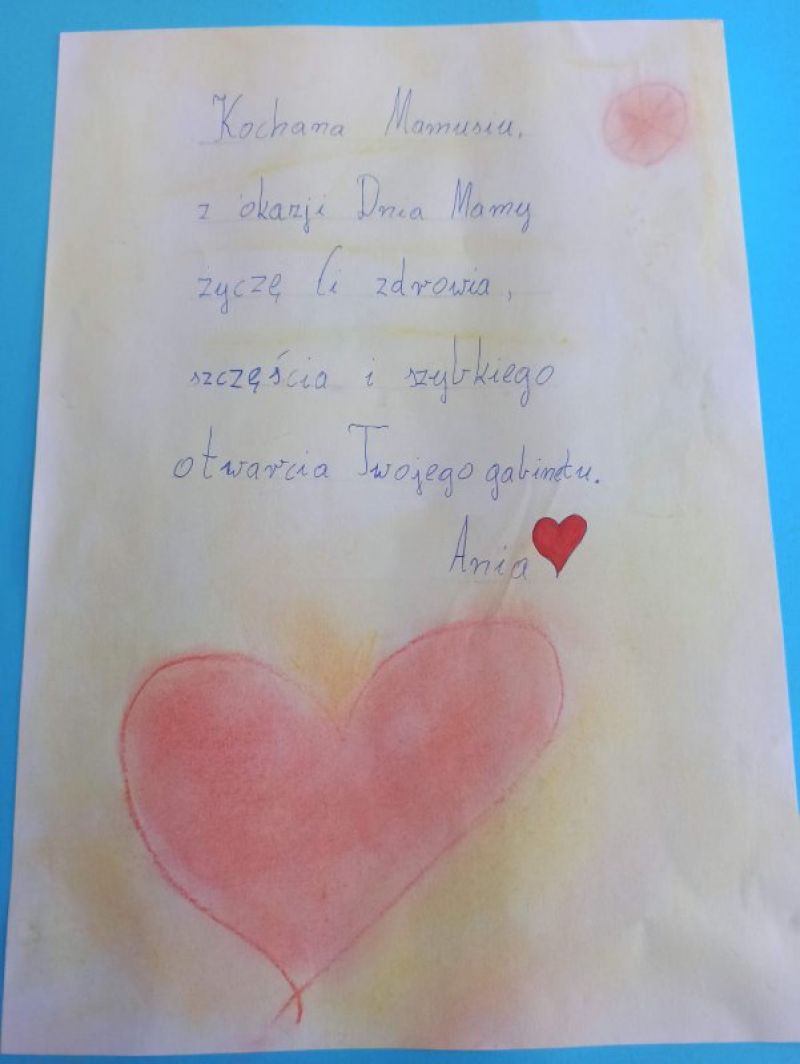 Kochana Mamusiu,
z okazji Dnia Mamy
życzę Ci zdrowia,
szczęścia i szybkiego
otwarcia Twojego gabinetu.
Ania